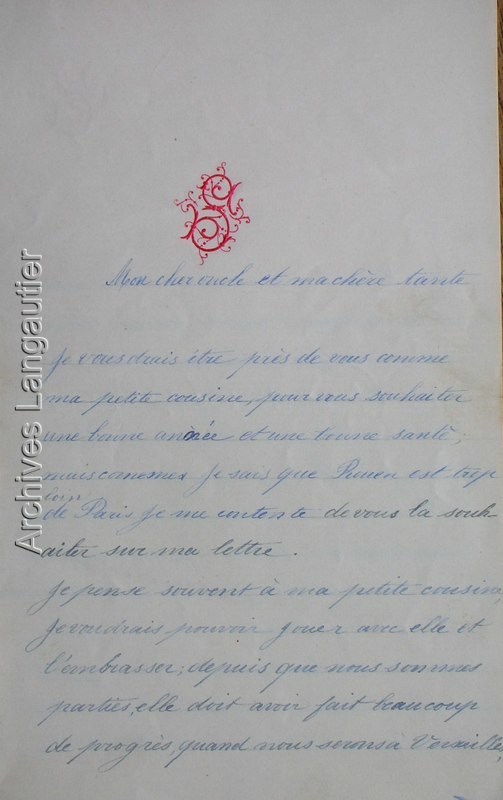 Mon cher oncle et ma chère tante
Je voudrais être près de vous comme
ma petite cousine, pour vous souhaiter
une bonne année et une bonne santé,
mais comme je sais que Rouen est trop
loin
de Paris je me contente de vous la souh-
aiter sur ma lettre.
Je pense souvent à ma petite cousine
Je voudrais pouvoir jouer avec elle et
l'embrasser; depuis que nous sommes
parties, elle doit avoir fait beaucoup
de progrès, quand nous serons à Versailles,
Archives Langautier